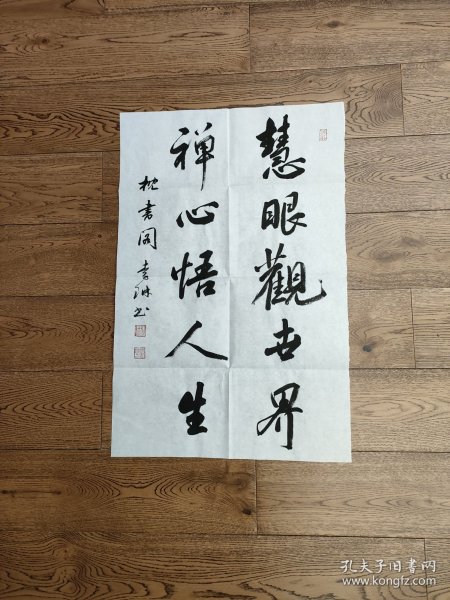 慧眼觀世界
禅心悟人生
枕書阁 李継书
孔夫子旧书网
www.kongfz.com